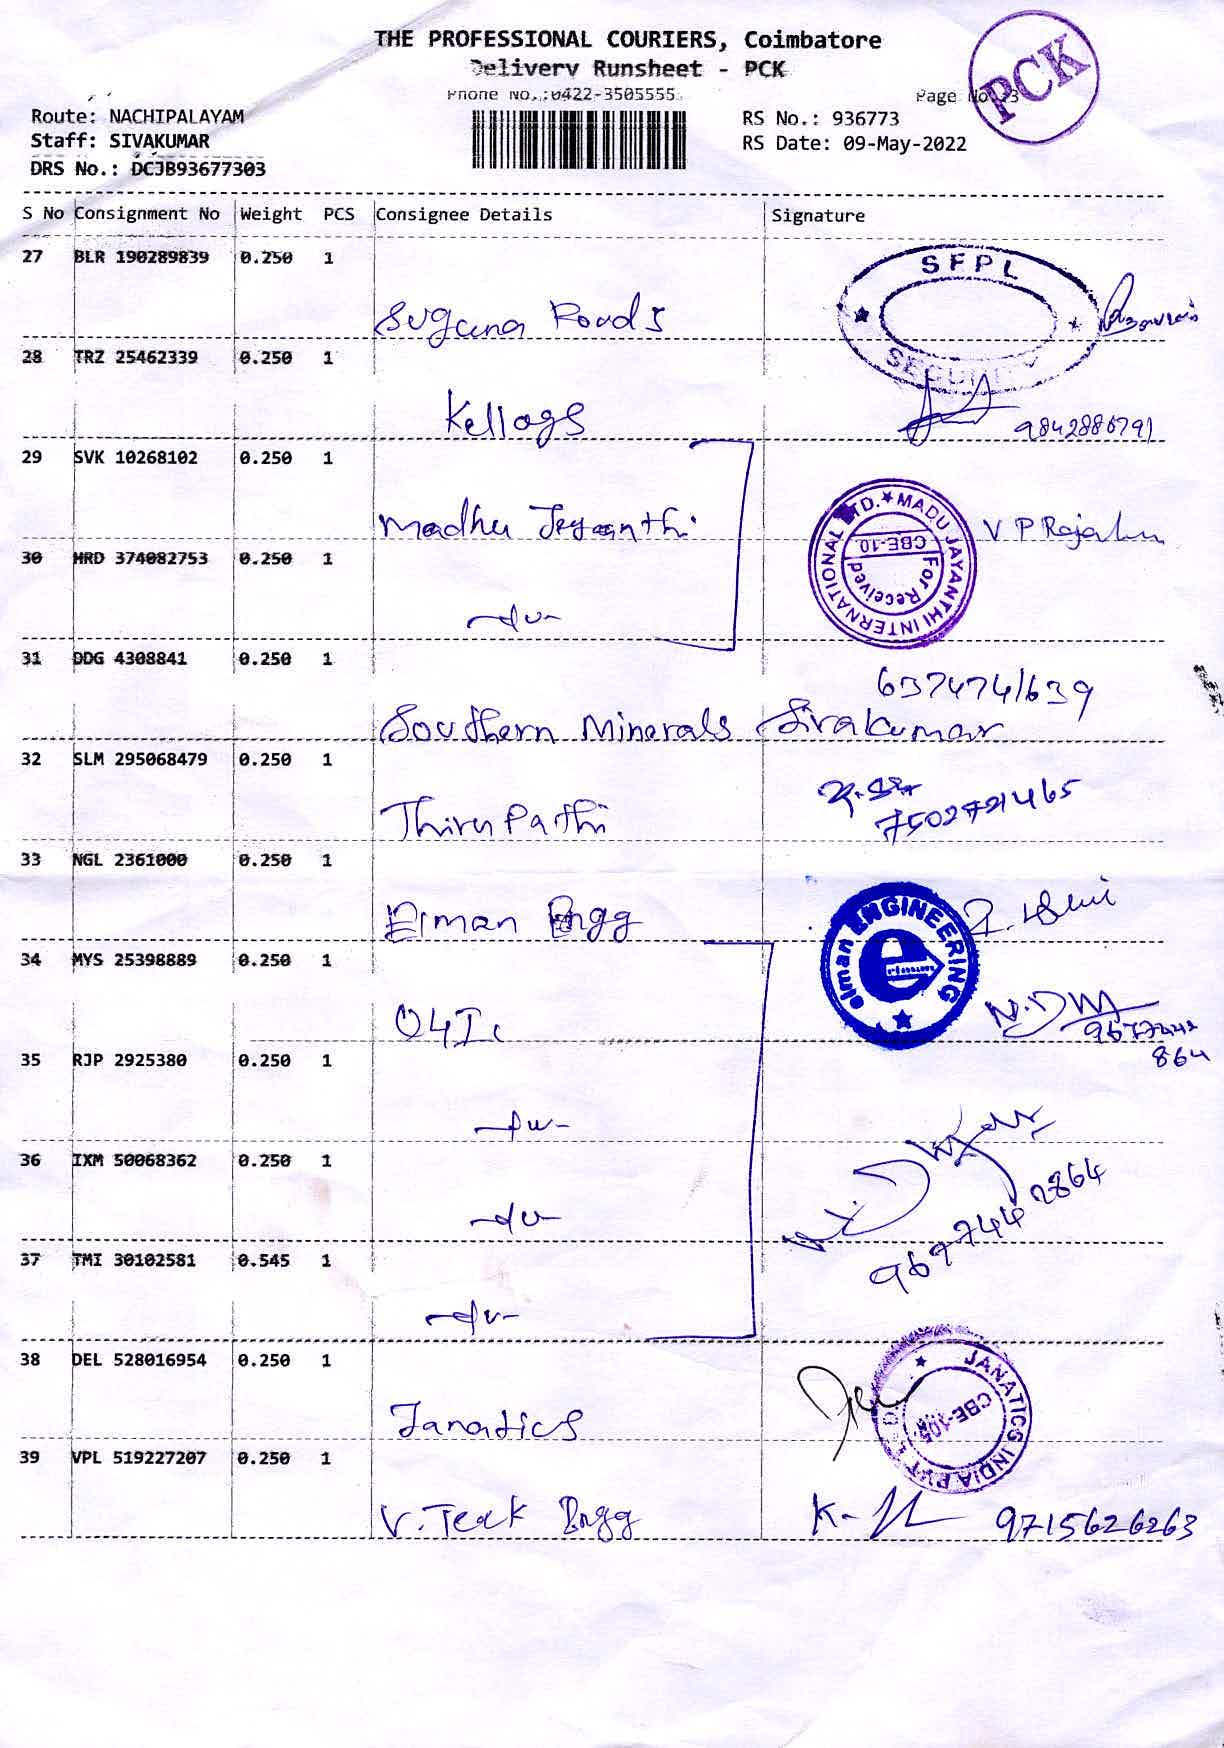 THE PROFESSIONAL COURIERS, Coimbatore
Delivery Runsheet - PCK
Phone No.:0422-3505555
PCK
Page No.:3
Route: NACHIPALAYAM
RS No.: 936773
Staff: SIVAKUMAR
RS Date: 09-May-2022
DRS No.: DCJB93677303
S No Consignment No Weight PCS Consignee Details Signature
27 BLR 190289839 0.250 1
Suguna Foods
SFPL
SECURITY
28 TRZ 25462339 0.250 1
Kellogs
9842886791
29 SVK 10268102 0.250 1
Madhu Jeyanthi
MADU JAYANTHI INTERNATIONAL LTD.
CBE-10
For Received
V P Raja
30 HRD 374082753 0.250 1
-do-
31 DDG 4308841 0.250 1
6374741639
Southern Minerals Sivakumar
32 SLM 295068479 0.250 1
Thirupathi
7502721465
33 NGL 2361000 0.250 1
Elman Engg
elman ENGINEERING
e
34 MYS 25398889 0.250 1
O4I
9677442
864
35 RJP 2925380 0.250 1
-do-
36 IXM 50068362 0.250 1
-do-
9677442864
37 TMI 30102581 0.545 1
-do-
38 DEL 528016954 0.250 1
Janatics
JANATICS INDIA PVT LTD.
CBE-105
39 VPL 519227207 0.250 1
V.Teck Engg
K-
9715626263